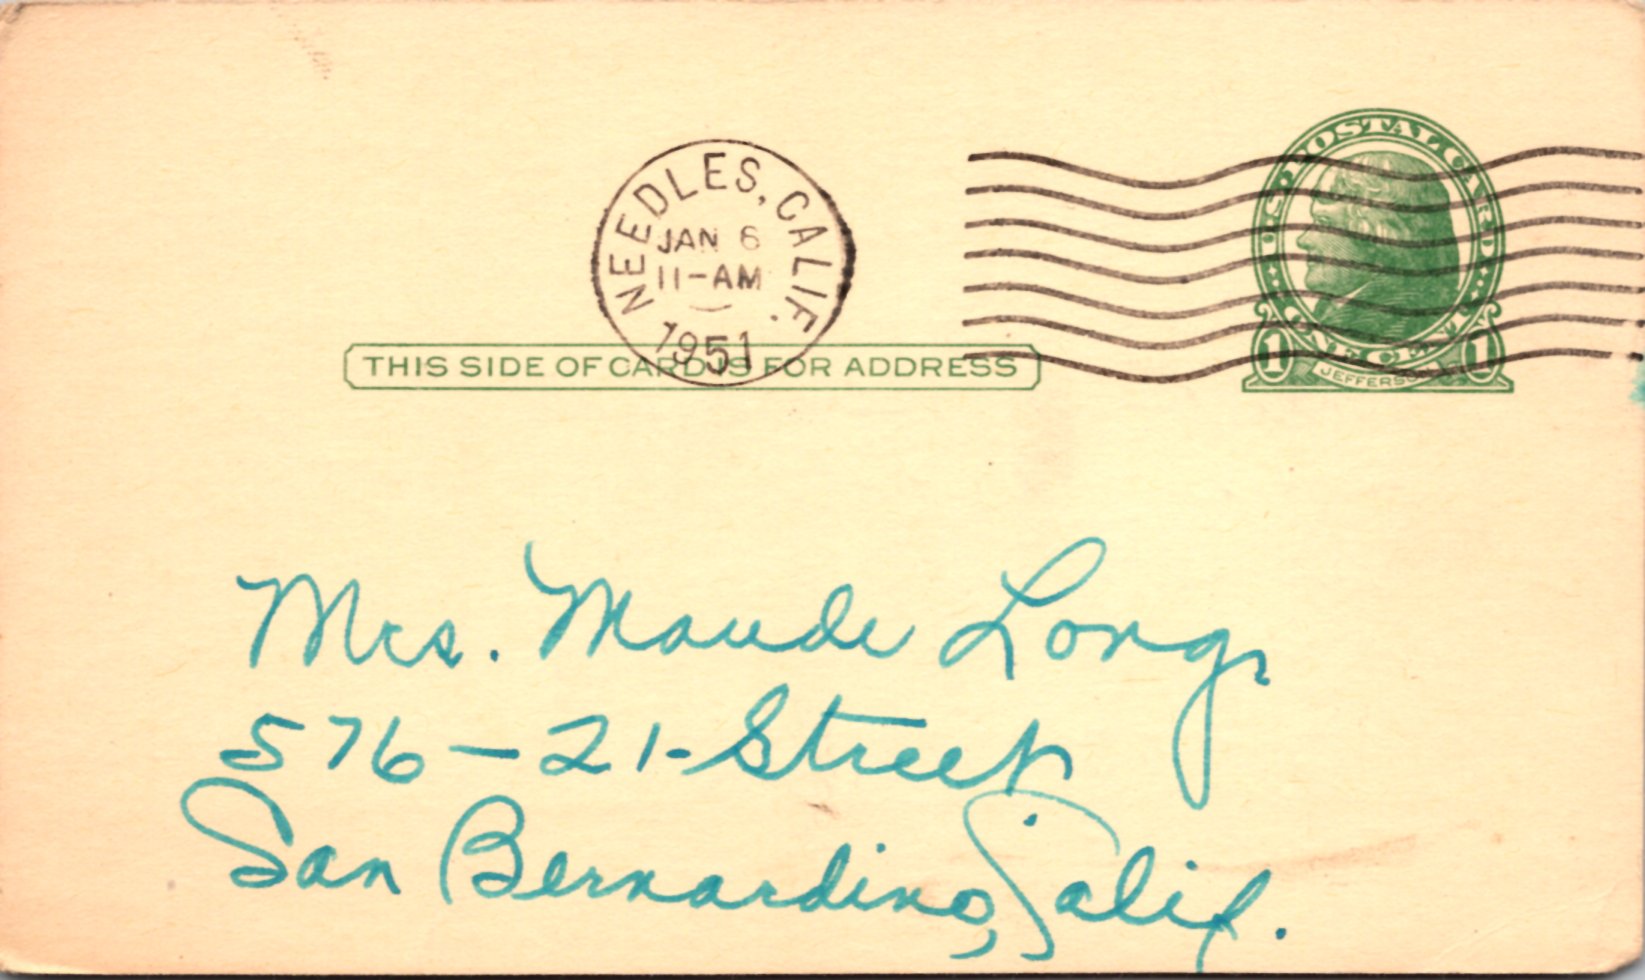 NEEDLES, CALIF.
JAN 6
11-AM
1951
U.S. POSTAL CARD
1 ONE CENT 1
JEFFERSON
THIS SIDE OF CARD IS FOR ADDRESS
Mrs. Maude Long,
576 - 21 - Street
San Bernardino, Calif.